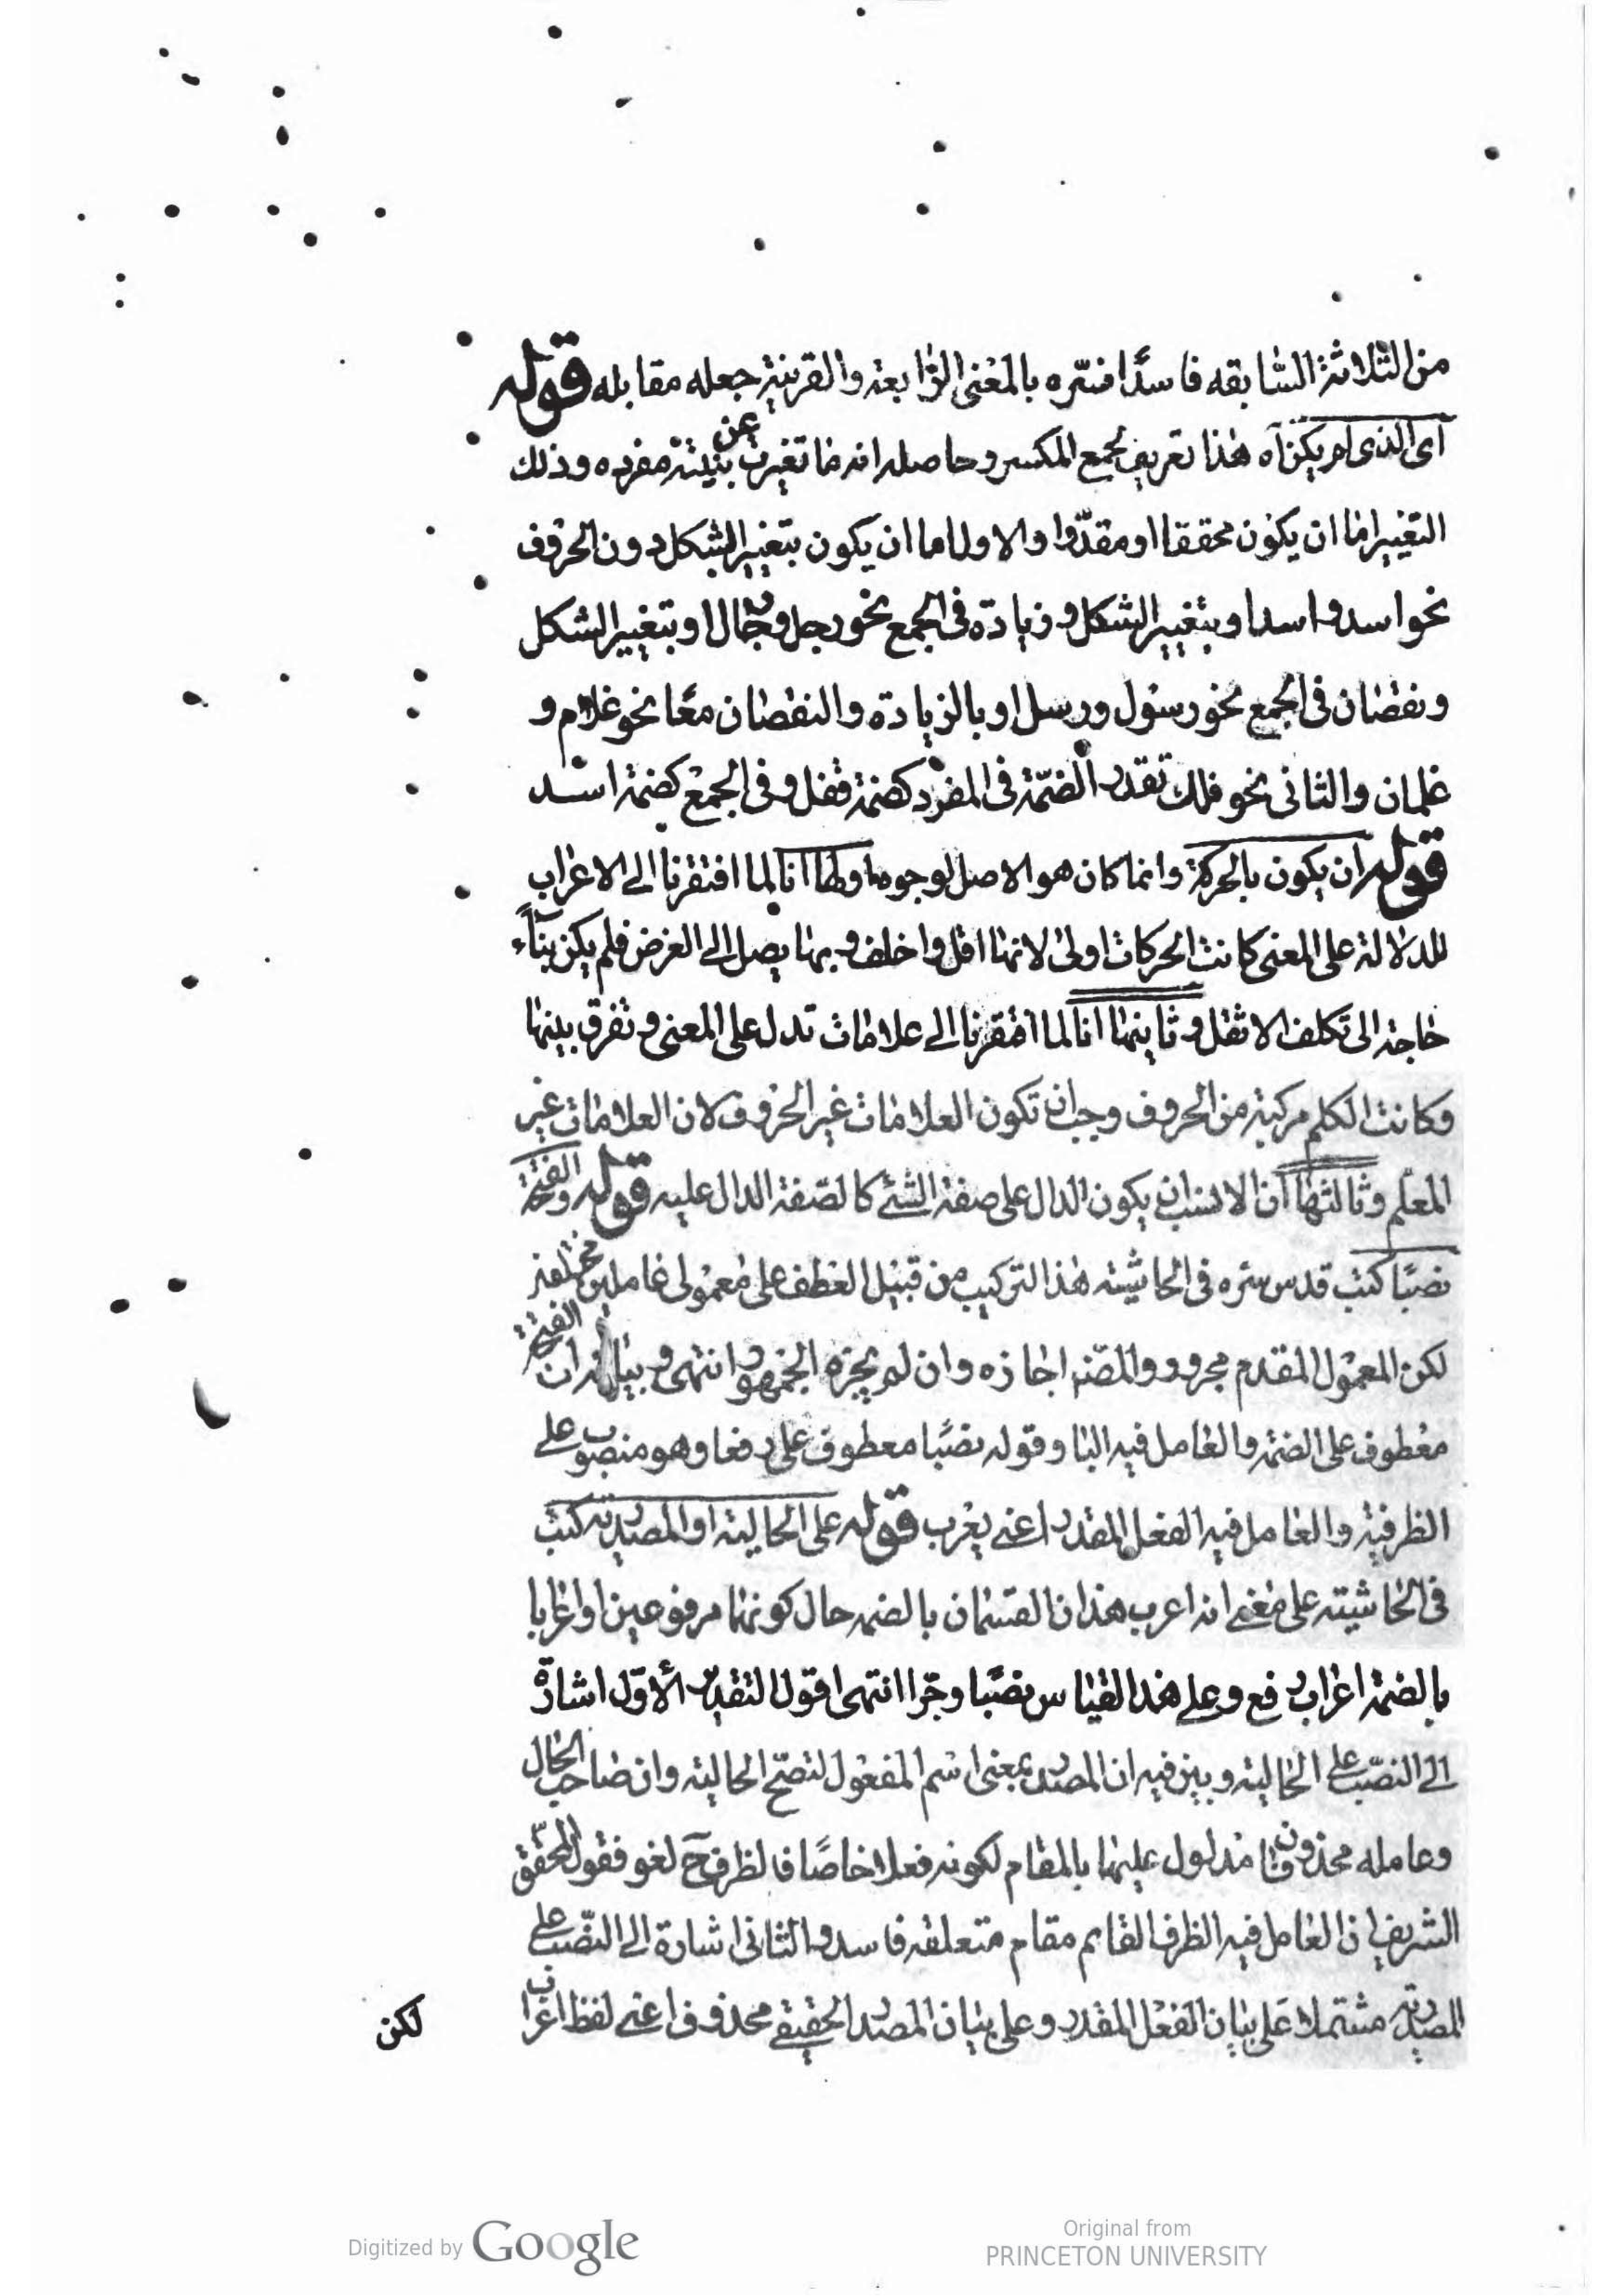 من الثلاثة السابقه فاسدًا فسّره بالمعنى الرابعة والقرينة جعله مقابله قوله
اى الذى لم يكن آه هذا تعريف لجمع المكسر وحاصله انه ما تغيرت عن بنيته مفرده وذلك
التغيير اما ان يكون محققا او مقدّرا والاول اما ان يكون بتغيير الشكل دون الحروف
نحو اسد واسد او بتغيير الشكل وزيادة فى الجمع نحو رجل ورجال او بتغيير الشكل
ونقصان فى الجمع نحو رسول ورسل او بالزيادة والنقصان معًا نحو غلام و
غلمان والثانى نحو فلك تقدر الضمّة فى المفرد كضمة قفل وفى الجمع كضمة اسد
قوله ان يكون بالحركة وانما كان هو الاصل لوجوه اولها انا لما افتقرنا الى الاعراب
للدلالة على المعنى كانت الحركات اولى لانها اقل واخف وبها يصل الى الغرض فلم يكن بنآء
حاجة الى تكلف الاثقل وثانيها انا لما افتقرنا الى علامات تدل على المعنى وتفرق بينها
وكانت الكلم مركبة من الحروف وجب ان تكون العلامات غير الحروف لان العلامات غير
المعلم وثالثها ان الانسب ان يكون الدال على صفة الشئ كالصّفة الدال عليه قوله والفتحة
نصبًا كتب قدس سره فى الحاشيته هذا التركيب من قبيل العطف على معمولى عاملين مختلفين
لكن المعمول المقدم مجرور والمصّنف اجازه وان لم يجزه الجمهور انتهى وبيانه ان الفتحة
معطوف على الضمة والعامل فيه البا وقوله نصبًا معطوف على رفعا وهو منصوب على
الظرفية والعامل فيه الفعل المقدر اعنى يعرب قوله على الحالية او المصدرية كتب
فى الحاشيته على معنى انه اعرب هذان القسمان بالضمه حال كونهما مرفوعين او اعرابا
بالضمة اعراب رفع وعلى هذا القياس نصبًا وجرّا انتهى اقول التقدير الأول اشارة
الى النصّب على الحالية وبين فيه ان المصدر بمعنى اسم المفعول لتصحّ الحالية وان صاحب الحال
وعامله محذوفان مدلول عليهما بالمقام لكونه فعلا خاصًا فالظرف ح لغو فقول المحقّق
الشريف ان العامل فيه الظرف القايم مقام متعلقه فاسد والثانى اشارة الى النصّب على
المصدرية مشتملا على بيان الفعل المقدر وعلى بيان المصدر الحقيقى محذوف اعنى لفظ اعراب
لكن
Digitized by Google
Original from
PRINCETON UNIVERSITY